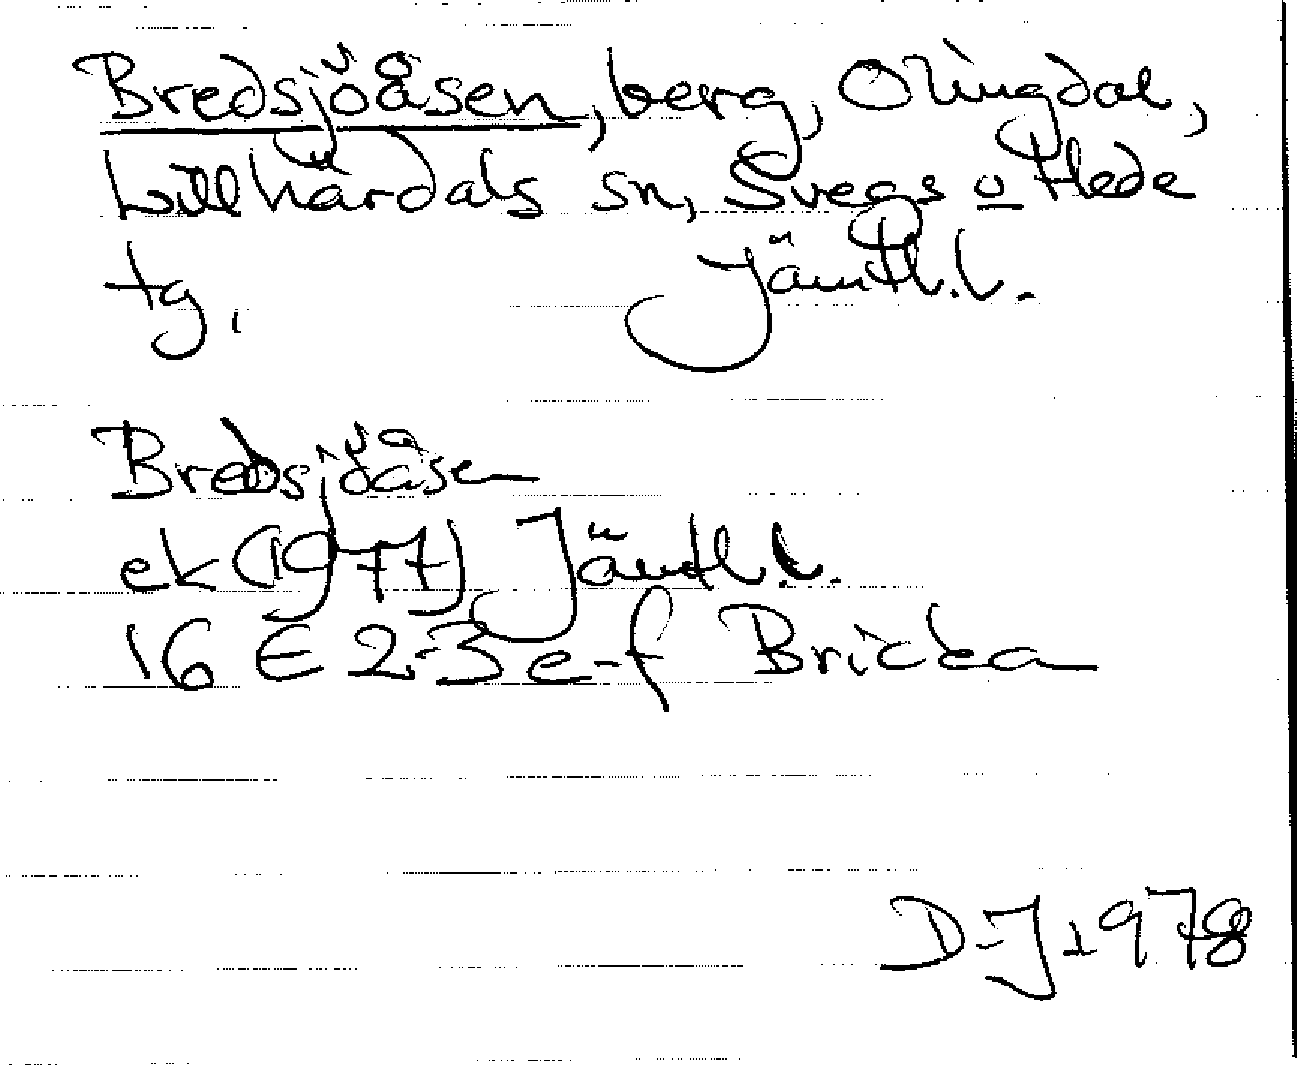 Bredsjöåsen, berg, Olingdal,
Lillhärdals sn, Svegs o Hede
tg. Jämtl.l.
Bredsjöåsen
ek (1977) Jämtl.l.
16 E 2-3 e-f Bricka
D-J 1978